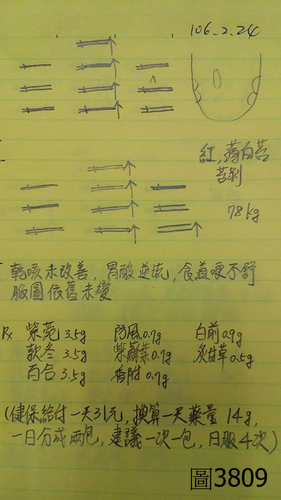 106.2.24
紅,薄白苔
苔剝
78kg
乾咳未改善,胃酸逆流,食道喉不舒
腹圍依舊未變
Rx 紫菀3.5g 防風0.7g 白前0.9g
款冬3.5g 紫蘇葉0.7g 炙甘草0.5g
百合3.5g 香附0.7g
(健保給付一天31元,換算一天藥量14g,
一日分成兩包,建議一次一包,日服4次)
圖3809